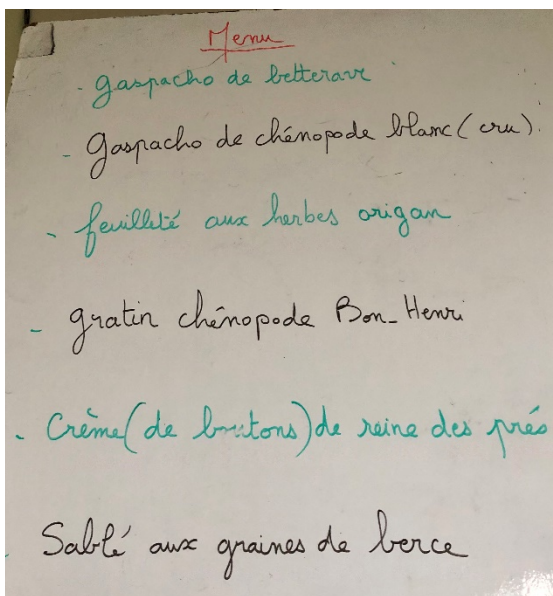 Menu
- gaspacho de betterave
- gaspacho de chénopode blanc (cru).
- feuilleté aux herbes origan
- gratin chénopode Bon-Henri
- Crème (de boutons) de reine des prés
- Sablé aux graines de berce